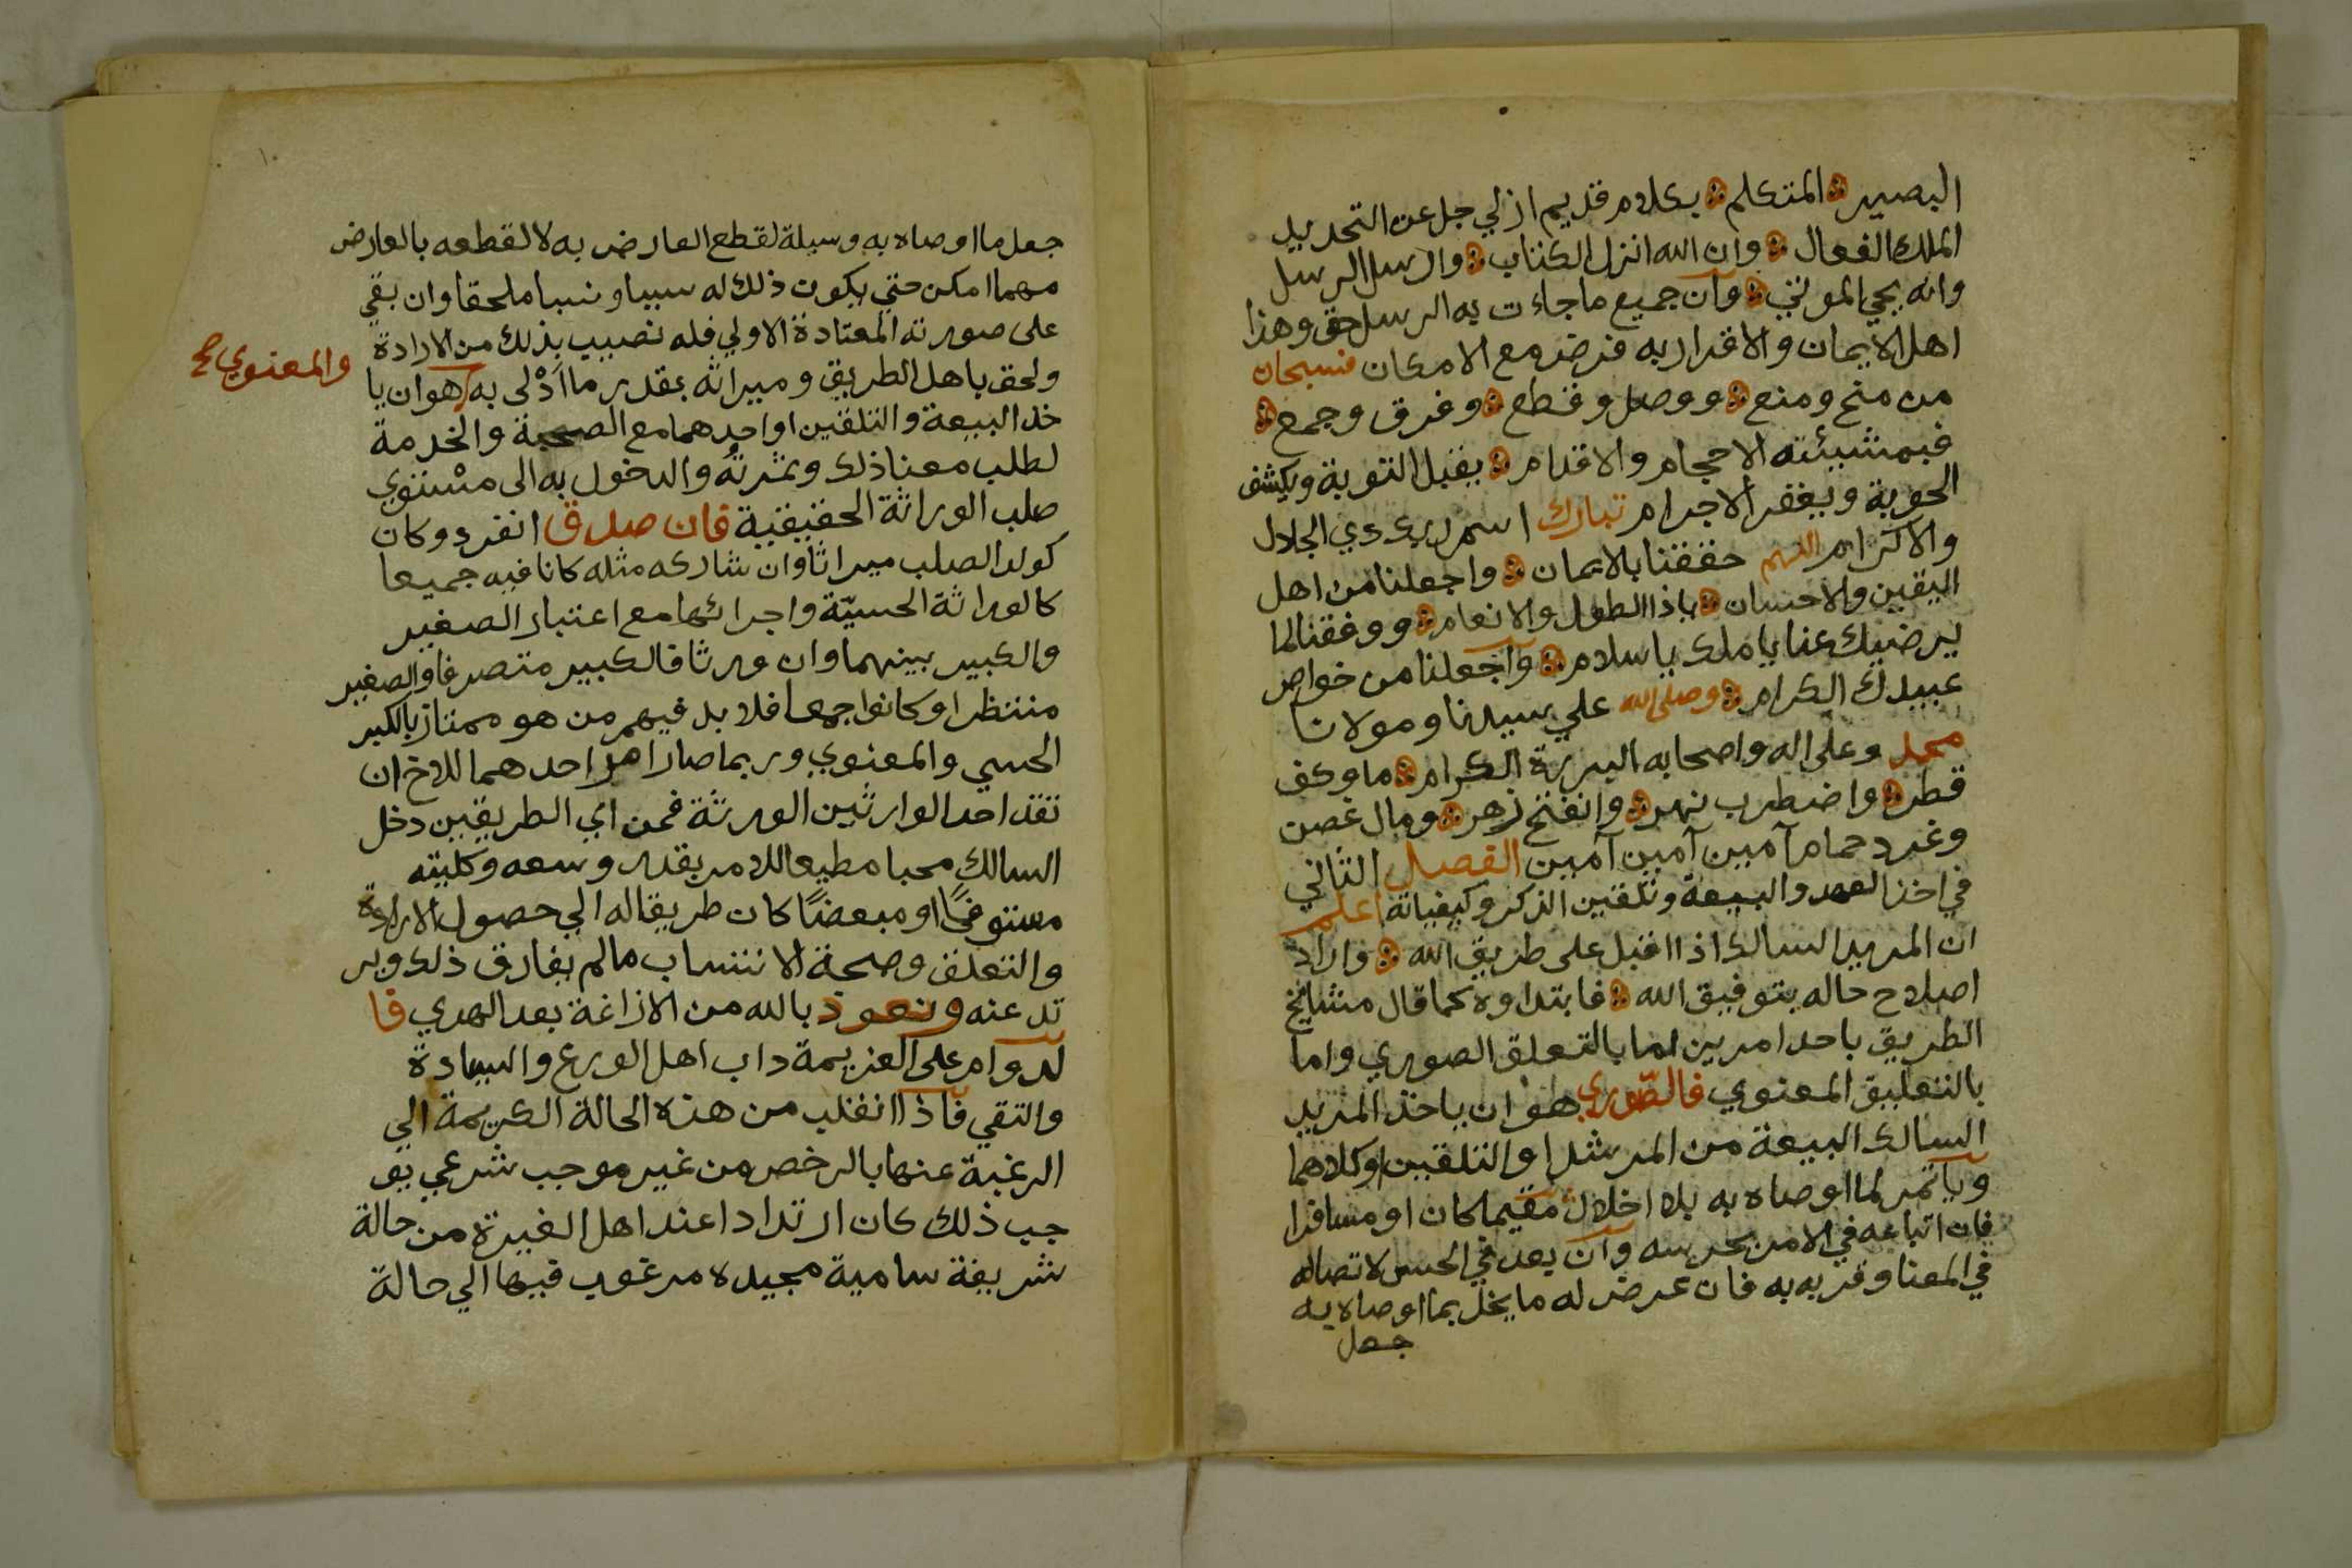 البصير المتكلم بكلام قديم ازلي جل عن التحديد
الملك الفعال وان الله انزل الكتاب وارسل الرسل
وانه يحي الموتي وان جميع ما جاءت به الرسل حق وهذا
اهل الايمان والاقرار به فرض مع الامكان فسبحان
من منح ومنع ووصل وقطع وفرق وجمع
فبمشيئته الاحجام والاقدام يقبل التوبة ويكشف
الحوبة ويغفر الاجرام تبارك اسم ربك ذي الجلال
والاكرام اللهم حققنا بالايمان واجعلنا من اهل
اليقين والاحسان ياذا الطول والانعام ووفقنا لما
يرضيك عنا يا ملك يا سلام واجعلنا من خواص
عبيدك الكرام وصلى الله علي سيدنا ومولانا
محمد وعلى اله واصحابه البررة الكرام ما وكف
قطر واضطرب نهر وانفتح زهر ومال غصن
وغرد حمام آمين آمين آمين الفصل الثاني
في اخذ العهد والبيعة وتلقين الذكر وكيفياته اعلم
ان المريد السالك اذا اقبل على طريق الله واراد
اصلاح حاله بتوفيق الله فابتداوه كما قال مشايخ
الطريق باحد امرين اما بالتعلق الصوري واما
بالتعليق المعنوي فالصّوري هو ان ياخذ المريد
السالك البيعة من المرشد او التلقين او كلاهما
وياتمر لما اوصاه به بلا اخلال مقيما كان او مسافرا
فان اتباعه في الامر يحرسه وان بعد في الحس لاتصاله
في المعنا وقربه به فان عرض له ما يخل بما اوصاه به
جعل
جعل ما اوصاه به وسيلة لقطع العارض به لا لقطعه بالعارض
مهما امكن حتي يكون ذلك له سببا ونسبا ملحقا وان بقي
على صورته المعتادة الاولي فله نصيب بذلك من الارادة
ولحق باهل الطريق وميراثه بقدر ما اَدْلى به هو ان يا
والمعنوي صح
خذ البيعة والتلقين او احدهما مع الصحبة والخدمة
لطلب معنا ذلك وثمرته والدخول به الى مستوي
صلب الوراثة الحقيقية فان صدق انفرد وكان
كولد الصلب ميراثا وان شاركه مثله كانا فيه جميعا
كالوراثة الحسيّة واجرائها مع اعتبار الصغير
والكبير بينهما وان ورثا فالكبير متصرفا والصغير
منتظرا وكانوا جمعا فلا بد فيهم من هو ممتاز بالكبر
الحسي والمعنوي وربما صار امر احدهما للاخر ان
تفقد احد الوارثين الورثة فمن اي الطريقين دخل
السالك محبا مطيعا للامر بقدر وسعه وكليته
مستوفيًا او مبعضًا كان طريقا له الي حصول الارادة
والتعلق وصحة الانتساب مالم يفارق ذلك وير
تد عنه ونعوذ بالله من الازاغة بعد الهدي فا
لدوام على العزيمة داب اهل الورع والسعادة
والتقي فاذا انقلب من هذه الحالة الكريمة الي
الرغبة عنها بالرخص من غير موجب شرعي يو
جب ذلك كان ارتدادا عند اهل الغيرة من حالة
شريفة سامية مجيده مرغوب فيها الي حالة